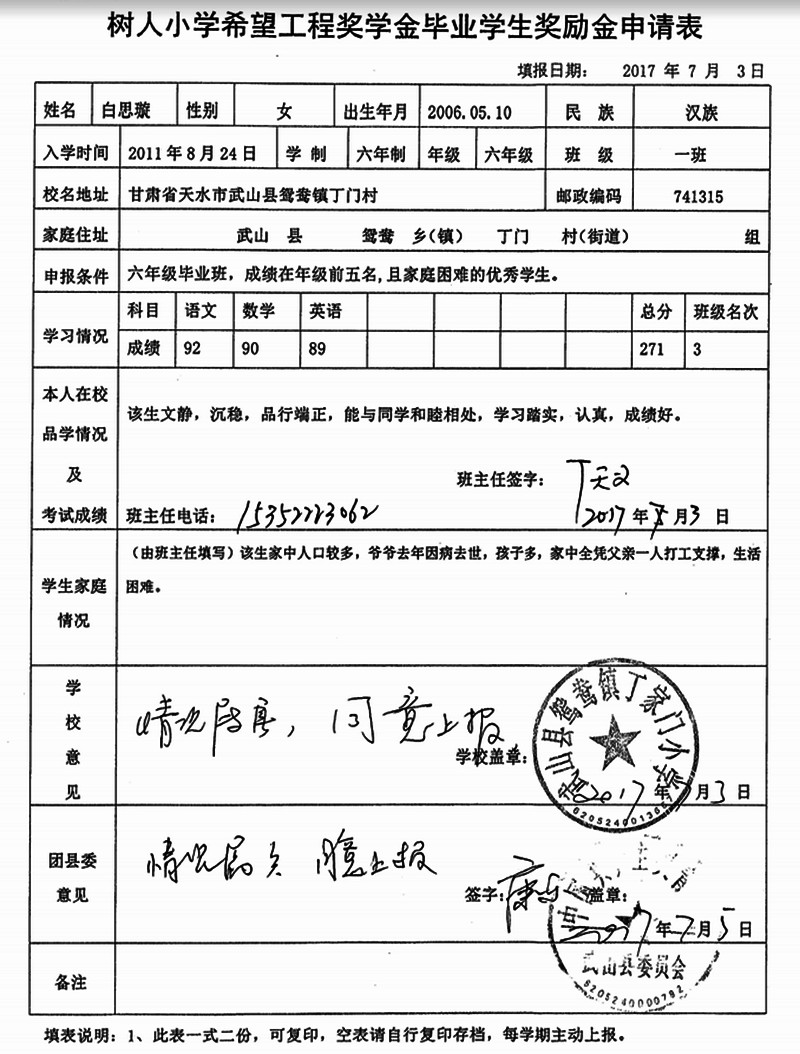 树人小学希望工程奖学金毕业学生奖励金申请表
填报日期： 2017 年 7 月 3 日
姓名 白思璇 性别 女 出生年月 2006.05.10 民 族 汉族
入学时间 2011 年 8 月 24 日 学 制 六年制 年级 六年级 班 级 一班
校名地址 甘肃省天水市武山县鸳鸯镇丁门村 邮政编码 741315
家庭住址 武山 县 鸳鸯 乡(镇) 丁门 村(街道) 组
申报条件 六年级毕业班，成绩在年级前五名,且家庭困难的优秀学生。
学习情况 科目 语文 数学 英语 总分 班级名次
成绩 92 90 89 271 3
本人在校
品学情况
及
考试成绩
该生文静，沉稳，品行端正，能与同学和睦相处，学习踏实，认真，成绩好。
班主任签字： 丁天文
班主任电话： 15352223062 2017 年 7 月 3 日
学生家庭
情况
（由班主任填写）该生家中人口较多，爷爷去年因病去世，孩子多，家中全凭父亲一人打工支撑，生活
困难。
学
校
意
见
情况属实，同意上报
学校盖章：
武山县鸳鸯镇丁家门小学
2017 年 7 月 3 日
团县委
意见
情况属实 同意上报
签字： 盖章：
2017 年 7 月 5 日
武山县委员会
6205240000782
备注
填表说明：1、此表一式二份，可复印，空表请自行复印存档，每学期主动上报。